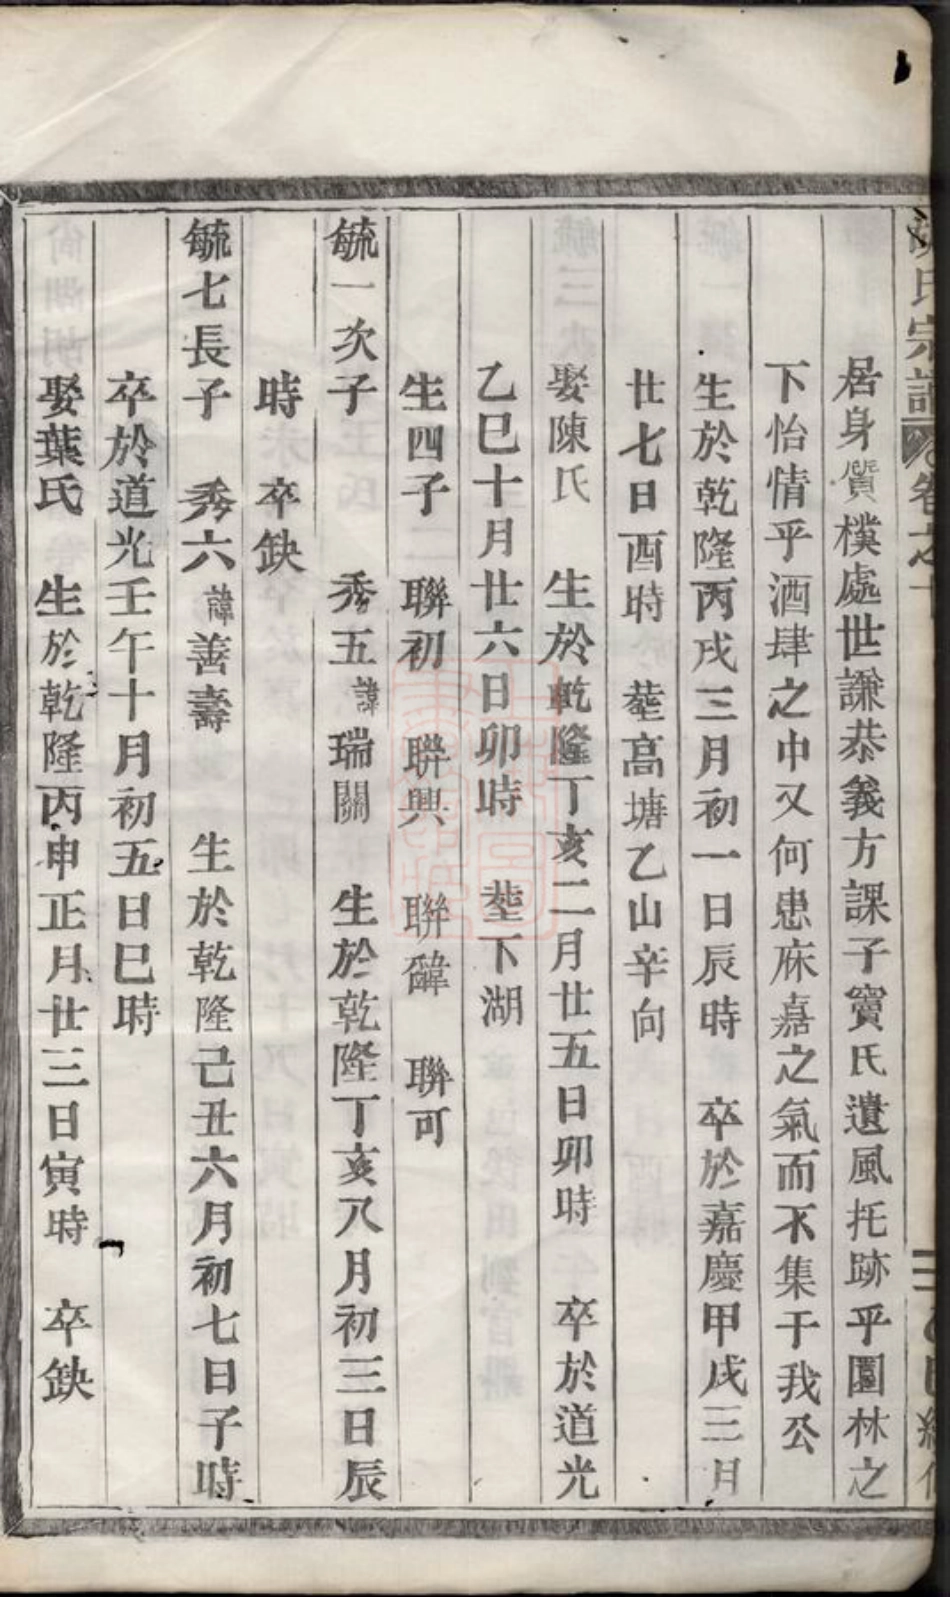 氏宗譜 卷之十
居身質樸處世謙恭義方課子竇氏遺風托跡乎園林之
下怡情乎酒肆之中又何患庥嘉之氣而不集于我公
生於乾隆丙戌三月初一日辰時 卒於嘉慶甲戌三月
廿七日酉時 塟高塘乙山辛向
娶陳氏 生於乾隆丁亥二月廿五日卯時 卒於道光
乙巳十月廿六日卯時 塟下湖
生四子 聯初 聯興 聯 聯可
毓一次子 秀五諱瑞關 生於乾隆丁亥八月初三日辰
時 卒缺
毓七長子 秀六諱善壽 生於乾隆己丑六月初七日子時
卒於道光壬午十月初五日巳時
娶葉氏 生於乾隆丙申正月廿三日寅時 卒缺